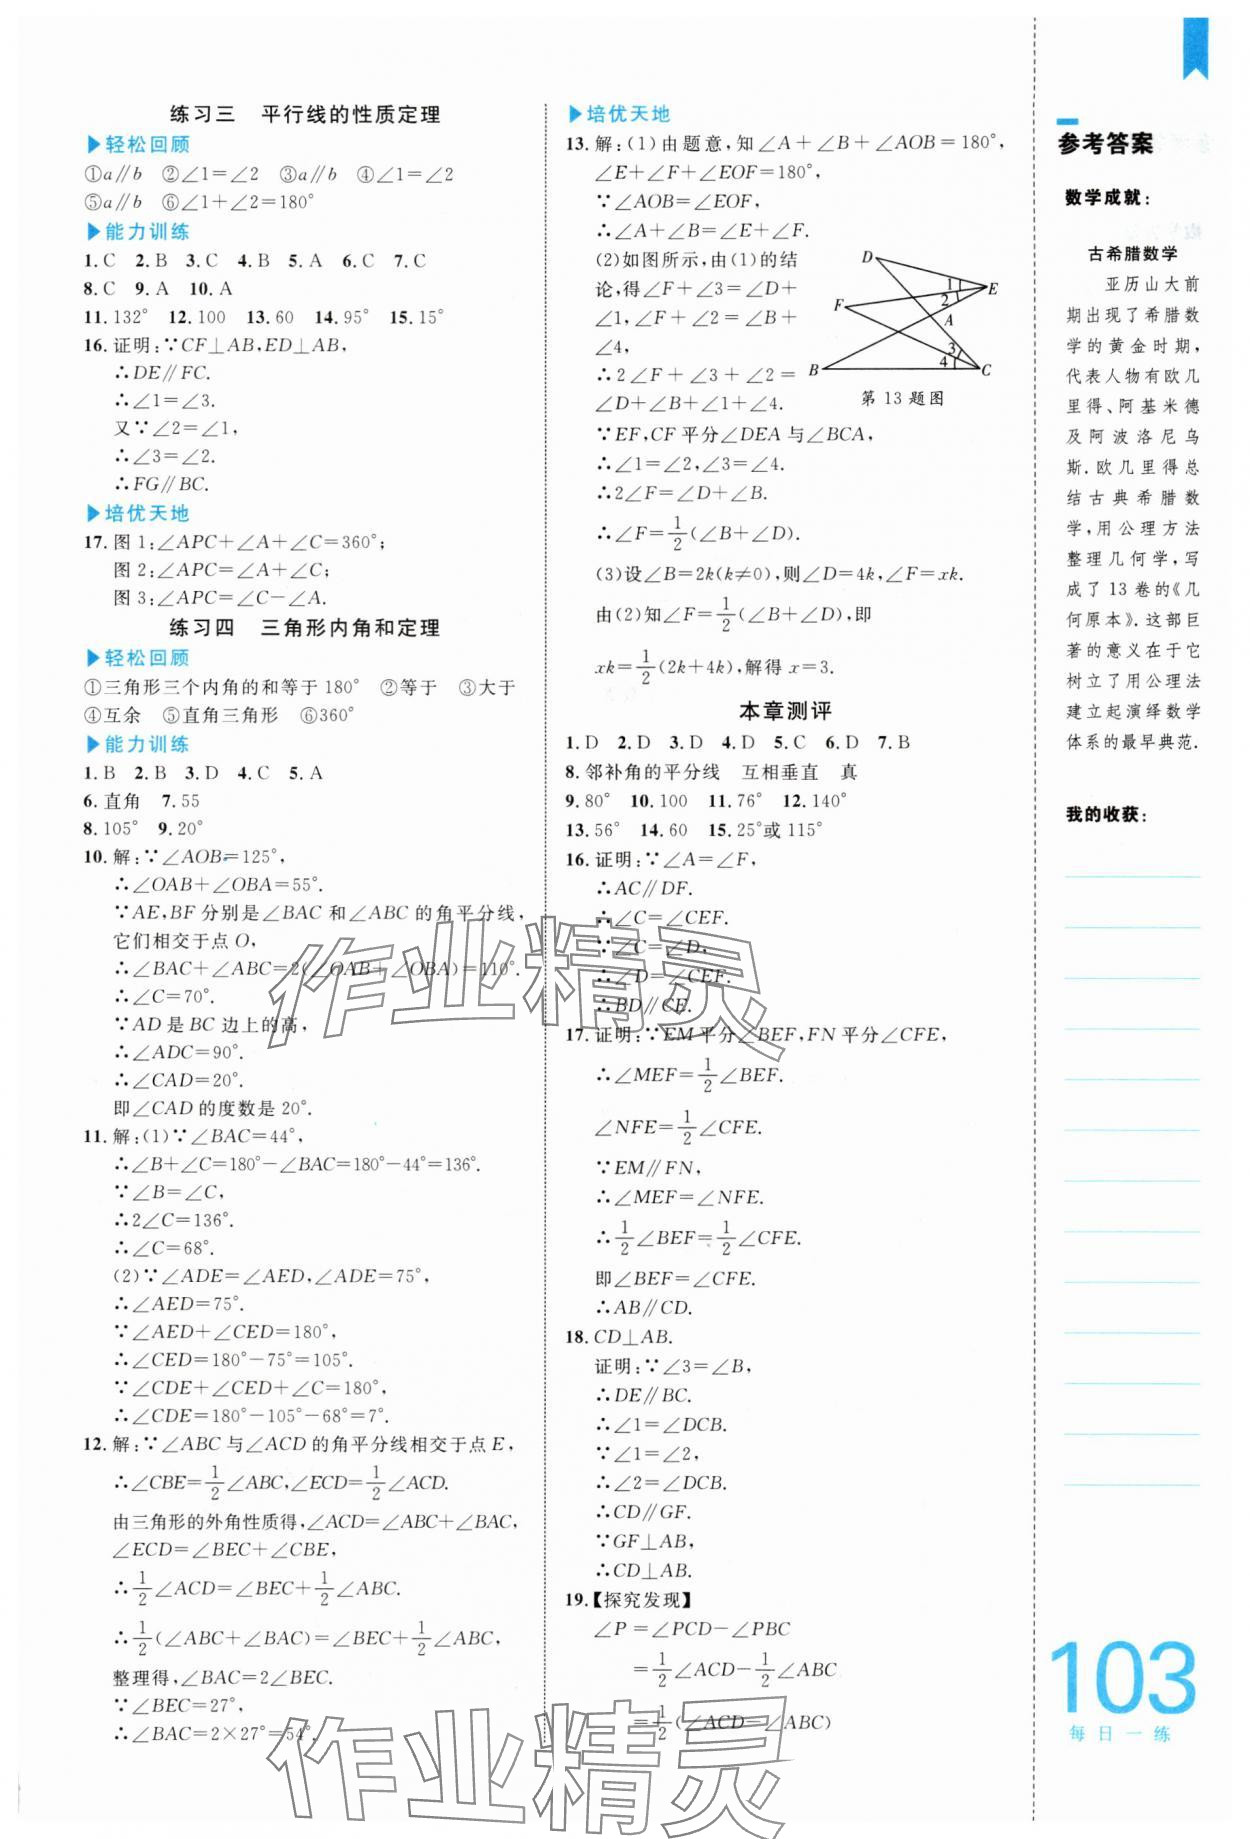 练习三 平行线的性质定理
▶轻松回顾
①a∥b ②∠1=∠2 ③a∥b ④∠1=∠2
⑤a∥b ⑥∠1+∠2=180°
▶能力训练
1.C 2.B 3.C 4.B 5.A 6.C 7.C
8.C 9.A 10.A
11.132° 12.100 13.60 14.95° 15.15°
16.证明:∵CF⊥AB,ED⊥AB,
∴DE∥FC.
∴∠1=∠3.
又∵∠2=∠1,
∴∠3=∠2.
∴FG∥BC.
▶培优天地
17.图1:∠APC+∠A+∠C=360°;
图2:∠APC=∠A+∠C;
图3:∠APC=∠C-∠A.
练习四 三角形内角和定理
▶轻松回顾
①三角形三个内角的和等于180° ②等于 ③大于
④互余 ⑤直角三角形 ⑥360°
▶能力训练
1.B 2.B 3.D 4.C 5.A
6.直角 7.55
8.105° 9.20°
10.解:∵∠AOB=125°,
∴∠OAB+∠OBA=55°.
∵AE,BF分别是∠BAC和∠ABC的角平分线,
它们相交于点O,
∴∠BAC+∠ABC=2(∠OAB+∠OBA)=110°.
∴∠C=70°.
∵AD是BC边上的高,
∴∠ADC=90°.
∴∠CAD=20°.
即∠CAD的度数是20°.
11.解:(1)∵∠BAC=44°,
∴∠B+∠C=180°-∠BAC=180°-44°=136°.
∵∠B=∠C,
∴2∠C=136°.
∴∠C=68°.
(2)∵∠ADE=∠AED,∠ADE=75°,
∴∠AED=75°.
∵∠AED+∠CED=180°,
∴∠CED=180°-75°=105°.
∵∠CDE+∠CED+∠C=180°,
∴∠CDE=180°-105°-68°=7°.
12.解:∵∠ABC与∠ACD的角平分线相交于点E,
∴∠CBE=1/2∠ABC,∠ECD=1/2∠ACD.
由三角形的外角性质得,∠ACD=∠ABC+∠BAC,
∠ECD=∠BEC+∠CBE,
∴1/2∠ACD=∠BEC+1/2∠ABC.
∴1/2(∠ABC+∠BAC)=∠BEC+1/2∠ABC,
整理得,∠BAC=2∠BEC.
∵∠BEC=27°,
∴∠BAC=2×27°=54°.
▶培优天地
13.解:(1)由题意,知∠A+∠B+∠AOB=180°,
∠E+∠F+∠EOF=180°,
∵∠AOB=∠EOF,
∴∠A+∠B=∠E+∠F.
(2)如图所示,由(1)的结
论,得∠F+∠3=∠D+
∠1,∠F+∠2=∠B+
∠4,
∴2∠F+∠3+∠2=
∠D+∠B+∠1+∠4.
D
1
E
2
F
A
3
B
4
C
第13题图
∵EF,CF平分∠DEA与∠BCA,
∴∠1=∠2,∠3=∠4.
∴2∠F=∠D+∠B.
∴∠F=1/2(∠B+∠D).
(3)设∠B=2k(k≠0),则∠D=4k,∠F=xk.
由(2)知∠F=1/2(∠B+∠D),即
xk=1/2(2k+4k),解得x=3.
本章测评
1.D 2.D 3.D 4.D 5.C 6.D 7.B
8.邻补角的平分线 互相垂直 真
9.80° 10.100 11.76° 12.140°
13.56° 14.60 15.25°或115°
16.证明:∵∠A=∠F,
∴AC∥DF.
∴∠C=∠CEF.
∵∠C=∠D,
∴∠D=∠CEF.
∴BD∥CE.
17.证明:∵EM平分∠BEF,FN平分∠CFE,
∴∠MEF=1/2∠BEF.
∠NFE=1/2∠CFE.
∵EM∥FN,
∴∠MEF=∠NFE.
∴1/2∠BEF=1/2∠CFE.
即∠BEF=∠CFE.
∴AB∥CD.
18.CD⊥AB.
证明:∵∠3=∠B,
∴DE∥BC.
∴∠1=∠DCB.
∵∠1=∠2,
∴∠2=∠DCB.
∴CD∥GF.
∵GF⊥AB,
∴CD⊥AB.
19.【探究发现】
∠P=∠PCD-∠PBC
=1/2∠ACD-1/2∠ABC
=1/2(∠ACD-∠ABC)
参考答案
数学成就:
古希腊数学
亚历山大前
期出现了希腊数
学的黄金时期,
代表人物有欧几
里得、阿基米德
及阿波洛尼乌
斯.欧几里得总
结古典希腊数
学,用公理方法
整理几何学,写
成了13卷的《几
何原本》.这部巨
著的意义在于它
树立了用公理法
建立起演绎数学
体系的最早典范.
我的收获:
103
每日一练
作业精灵
作业精灵